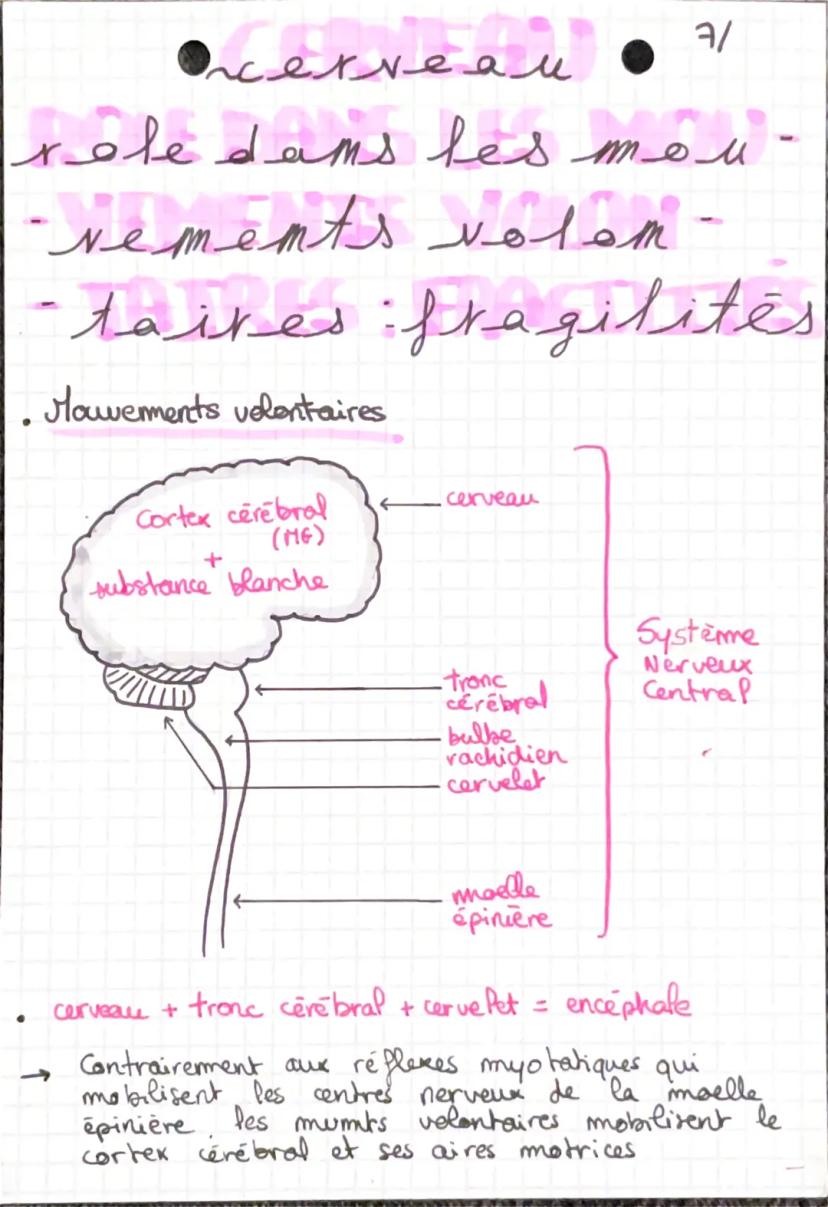 7/
cerveau
CERVEAU
role dans les mou-
ROLE DANS LES MOU
-vements volon-
VEMENTS VOLON
-taires : fragilités
TAIRES : FRAGILITÉS
. Mouvements volontaires
Cortex cérébral
(MG)
+
substance blanche
cerveau
tronc
cérébral
bulbe
rachidien
cervelet
moelle
épinière
Système
Nerveux
Central
. cerveau + tronc cérébral + cervelet = encéphale
→ Contrairement aux réflexes myotatiques qui
mobilisent les centres nerveux de la moelle
épinière, les mvmts volontaires mobilisent le
cortex cérébral et ses aires motrices